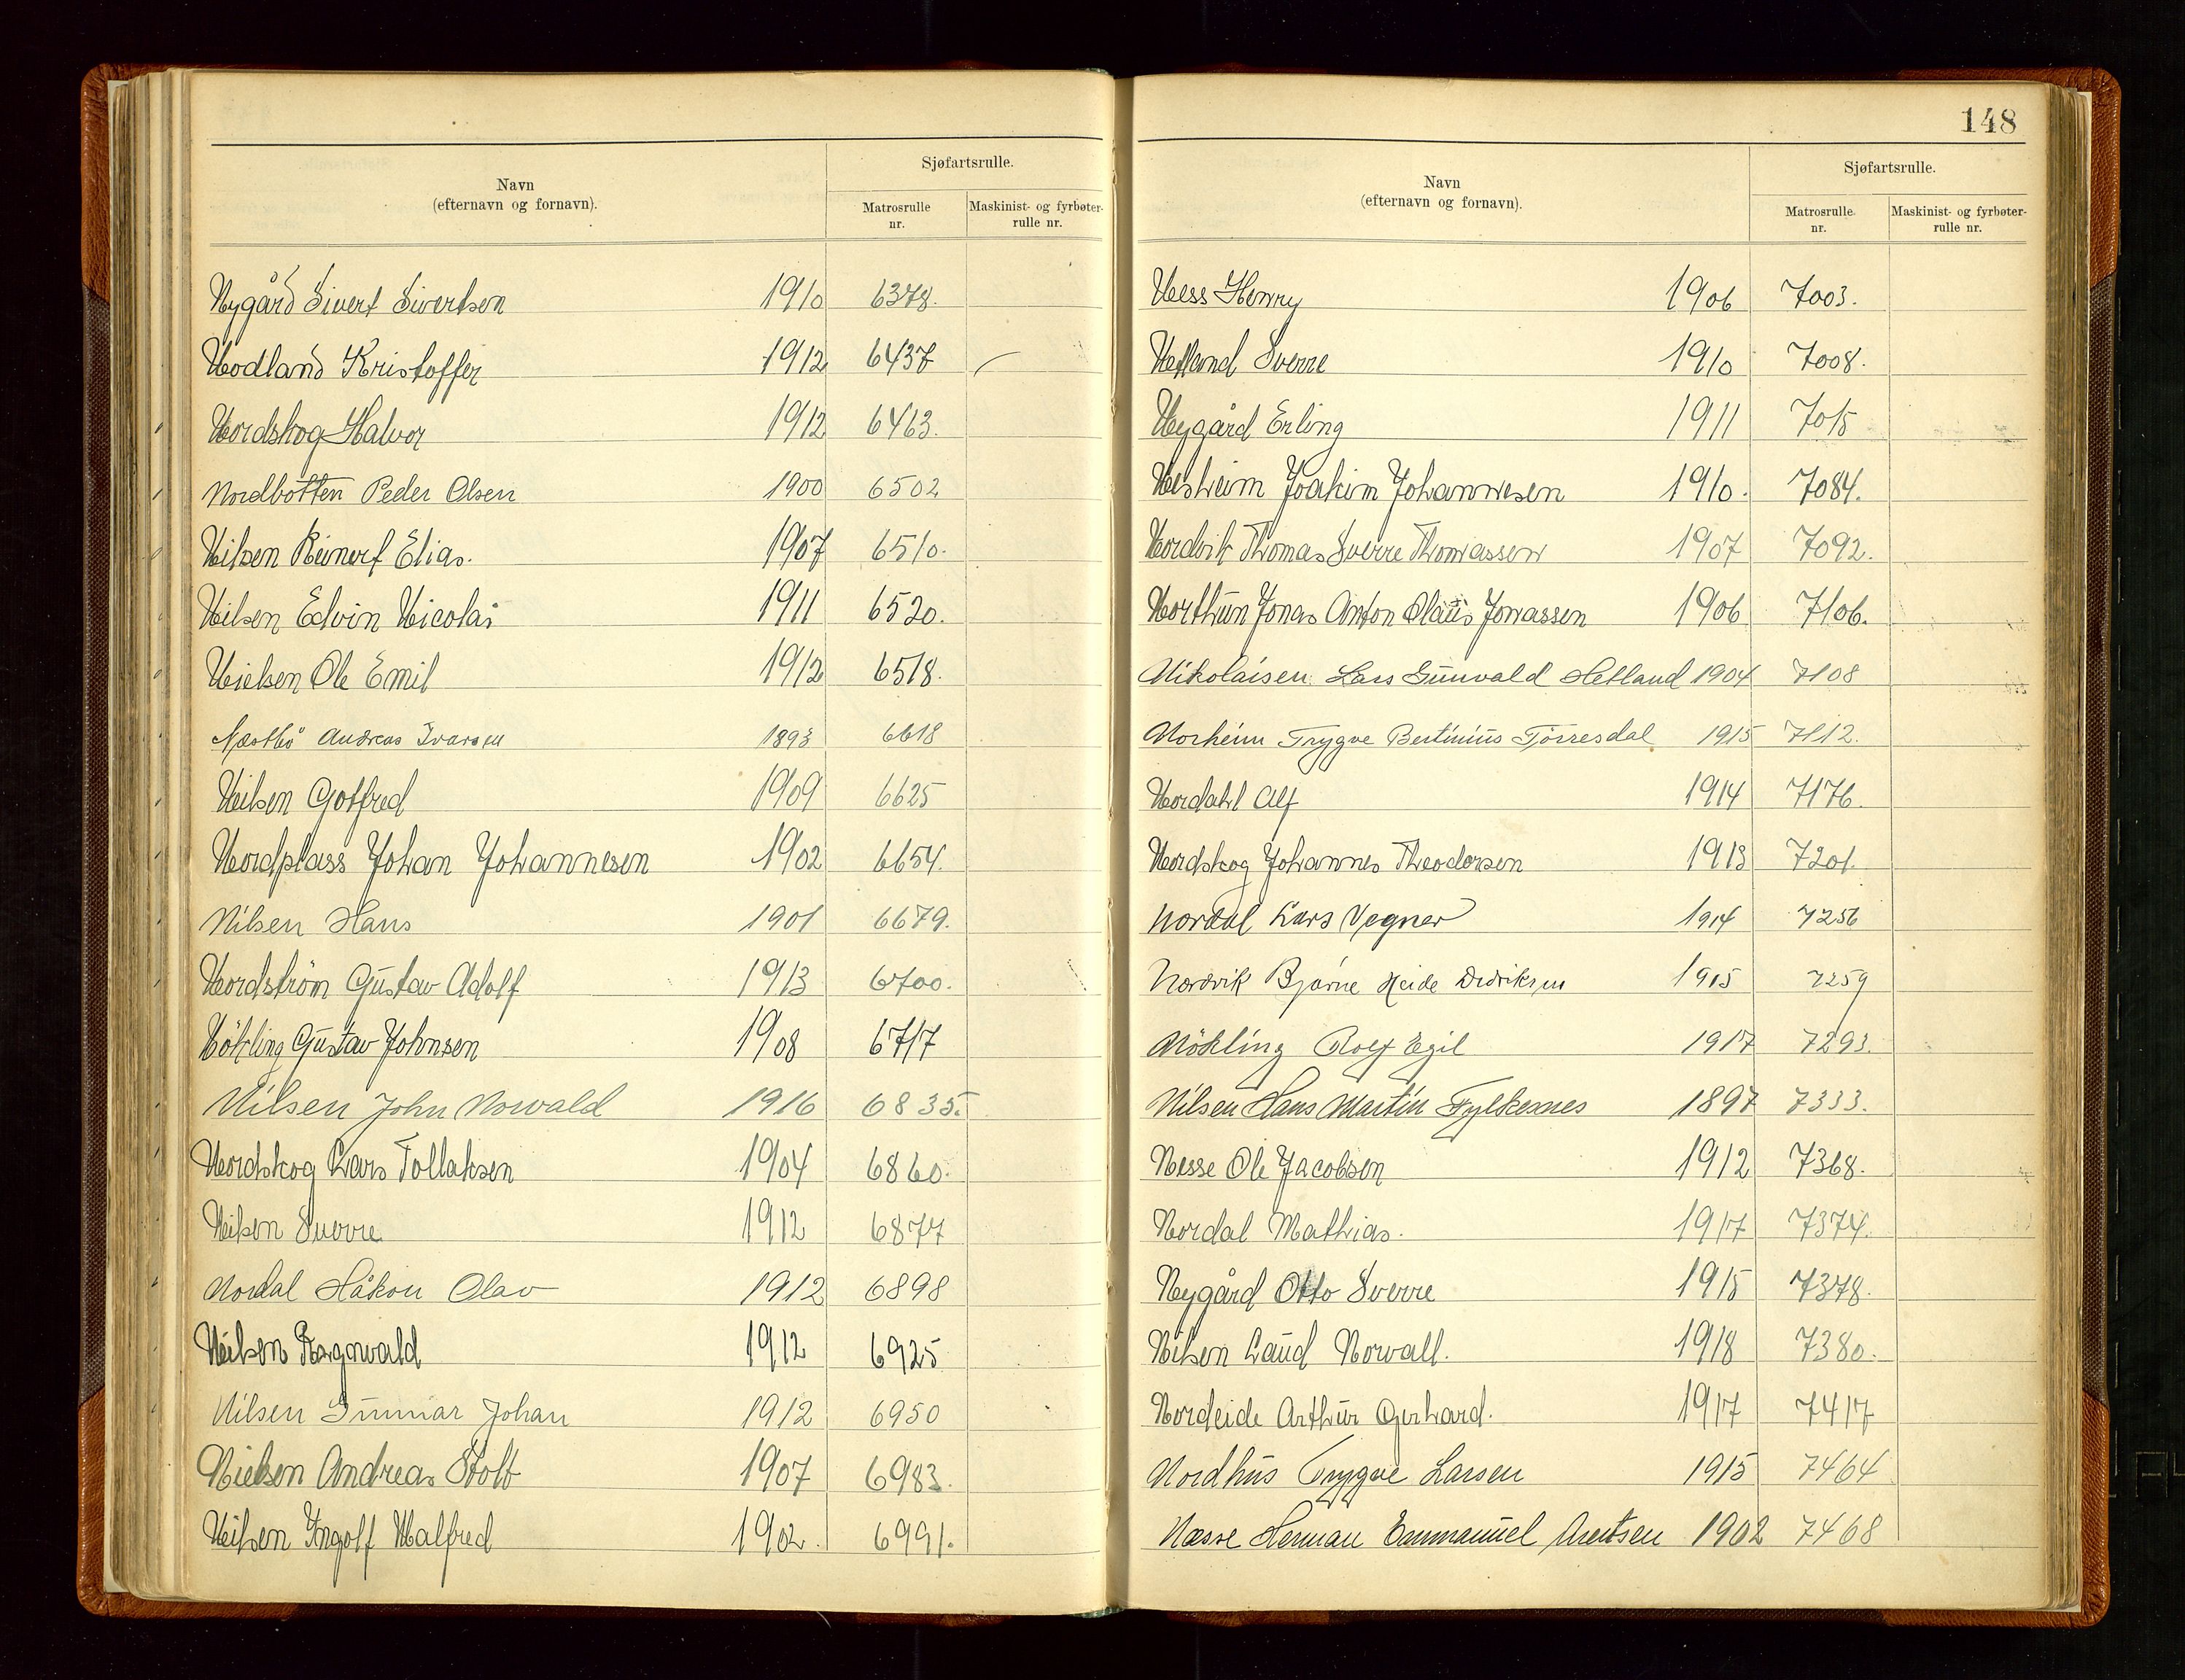 Navn
(efternavn og fornavn).
Sjøfartsrulle.
Matrosrulle
nr.
Maskinist- og fyrbøter-
rulle nr.
Nygård Sivert Sivertsen 1910 6378.
Nodland Kristoffer 1912 6437
Nordskog Halvor 1912 6463.
Nordbotten Peder Olsen 1900 6502
Nilsen Reinert Elias. 1907 6510.
Nilsen Edvin Nicolai 1911 6520.
Nielsen Ole Emil 1912 6518.
Næstbö Andreas Ivarsen 1893 6618
Nilsen Gotfred 1909 6625
Nordplass Johan Johannesen 1902 6654.
Nilsen Hans 1901 6679.
Nordström Gustav Adolf 1913 6700.
Nökling Gustav Johnsen 1908 6717
Nilsen John Norvald 1916 6835.
Nordskog Lars Tollaksen 1904 6860.
Nilsen Sverre 1912 6877
Nordal Håkon Olav 1912 6898
Nilsen Ragnvald 1912 6925
Nilsen Gunnar Johan 1912 6950
Nielsen Andreas Stolt 1907 6983.
Nilsen Ingolf Halfred 1902. 6991.
148
Navn
(efternavn og fornavn).
Sjøfartsrulle.
Matrosrulle
nr.
Maskinist- og fyrbøter-
rulle nr.
Ness Henry 1906 7003.
Sverre 1910 7008.
Nygård Erling 1911 7015
Nesheim Joakim Johannesen 1910. 7084.
Nordvik Thomas Sverre Thomassen 1907 7092.
Northun Jonas Anton Olaus Jonassen 1906 7106.
Nikolaisen Lars Gunvald Hetland 1904 7108
Norheim Trygve Bertinius Törresdal 1915 7112.
Nordahl Alf 1914 7176.
Nordskog Johannes Theodorsen 1913 7201.
Nordal Lars Vegner 1914 7256
Nordvik Bjarne Heide Didriksen 1915 7259
Nökling Rolf Egil 1917 7293.
Nilsen Hans Martin Fylkesnes 1897 7333.
Nesse Ole Jacobsen 1912 7368.
Nordal Mathias. 1917 7374.
Nygård Otto Sverre 1915 7378.
Nilsen Laud Norvall. 1918 7380.
Nordeide Arthur Gerhard. 1917 7417
Nordhus Trygve Larsen 1915 7464
Næsse Herman Emmanuel Arentsen 1902 7468